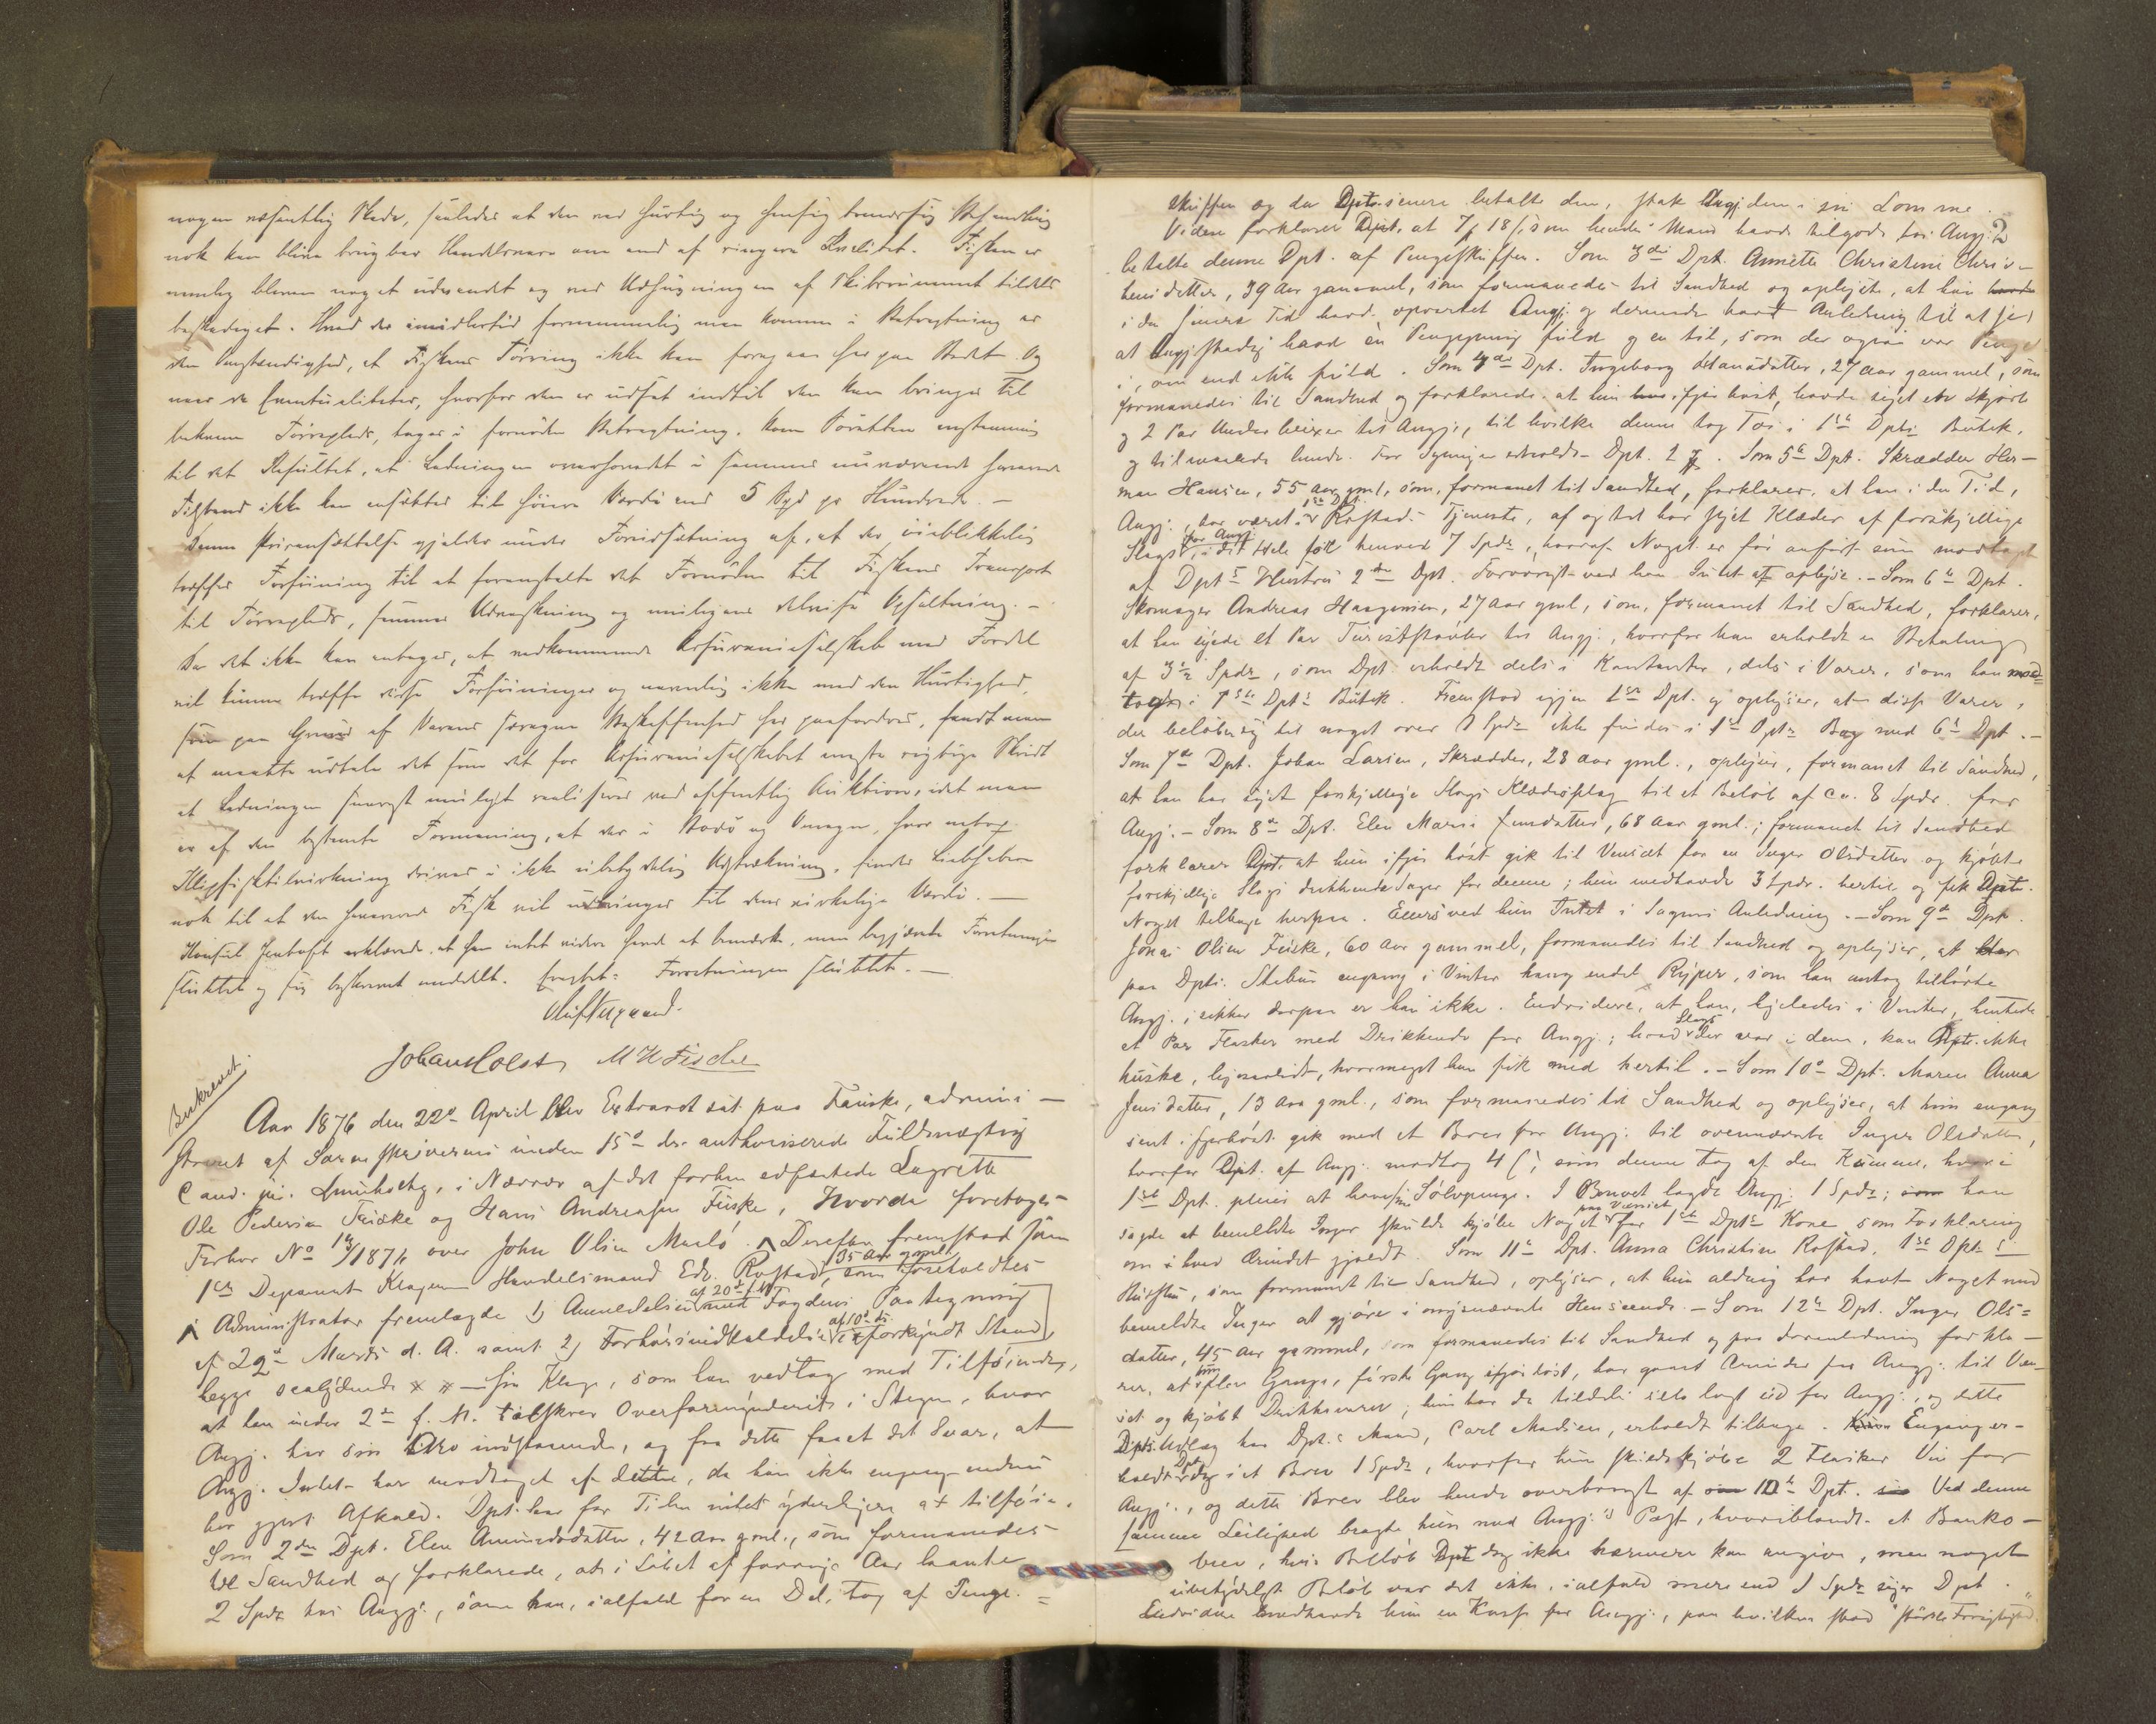 nogen væsentlig Skade, saaledes at den ved hurtig og hensigtsmæssig Behandling
nok kan blive brugbar Handelsvare om end af ringere Kvalitet. Fisken er
nemlig bleven noget udvandet og ved Udsugningen af Skibsrummet tildels
beskadiget. Hvad der imidlertid fornemmelig maa komme i Betragtning er
den Omstændighed, at Fiskens Tørring ikke kan foregaa her paa Stedet. Og
naar de Eventualiteter, hvorfor den er udsat indtil den kan bringes til
bekvem Tørreplads, tages i fornøden Betragtning, kom Retten enstemmig
til det Resultat, at Ladningen overhovedet i sammes nuværende havarerede
Tilstand ikke kan ansættes til høiere Værdi end 5 Spd pr Hundrede. –
Denne Prisansættelse gjælder under Forudsætning af, at der øieblikkelig
træffes Forføining til at foranstalte det Fornødne til Fiskens Transport
til Tørreplads, sammes Udvaskning og muligens delvise Opsaltning. –
Da det ikke kan antages, at vedkommende Assuranceselskab med Fordel
vil kunne træffe disse Forføininger og navnlig ikke med den Hurtighed,
som paa Grund af Varens havarerede Beskaffenhed her paafordres, fandt man
at maatte udtale det som det for Assuranceselskabet eneste rigtige Skridt
at Ladningen snarest muligt realiseres ved offentlig Auktion, idet man
er af den bestemte Formening, at der i Bodø og Omegn, hvor netop
Klipfisktilvirkning drives i ikke ubetydelig Udstrækning, findes Liebhabere
nok til at den havarerede Fisk vil udbringes til dens virkelige Værdi. –
Konsul Jentoft erklærede, at han intet videre havde at bemærke, men begjærte Forretningen
sluttet og sig beskrevet meddelt. Eragtet: Forretningen sluttet. –
Johan Holst M H Fischer
Beskrevet.
Aar 1876 den 22de April blev Extraret sat paa Fauske, admini–
streret af Sorenskriverens under 15de ds. authoriserede Fuldmægtig
Cand. jur. Amushelg, i Nærvær af det forhen edfæstede Lagrette
Ole Pedersen Fauske og Hans Andreasen Fuske, Hvorda foretoges
Forhør No 14/1876 over John Olsen Maelø. ^ Derefter fremstod som
1ste Deponent Klageren Handelsmand Edv. Rostad, 35 Aar gml. som foreholdtes
^ Administrator fremlagde 1) Anmeldelsen af 20de f. M. med Fogdens Paategning
af 29de Marts d. A. samt 2) Forhørsindkaldelsen af 10de ds. i forkyndt Stand,
begge saalydende x x – sin Klage, som han vedtog med Tilføiende,
at han under 2den f. M. tilskrev Overformynderiet i Steigen, hvor
Angj. har sin Arv indestaaende, og fra dette faaet det Svar, at
Angj. Intet har modtaget af dette, da han ikke engang endnu
har gjort Afkald. Dpt. har for Tiden intet yderligere at tilføie.
Som 2den Dpt. Elen Amundsdatter, 42 Aar gml., som formanedes
til Sandhed og forklarede, at i Løbet af forrige Aar laante
2 Spdr hos Angj., som han, ialfald for en Del, tog af Penge- =
skriften og da Dpt. senere betalte den, stak Angj. den i sin Lomme.
Videre forklarer Dpt., at 7 18/ som hendes Mand havde tilgode hos Angj. 2
betalte denne Dpt. af Pengeskriften. Som 3die Dpt. Annette Christine Chris–
tensdatter, 39 Aar gammel, som formanedes til Sandhed og oplyste, at hun havde
i den senere Tid havde opvartet Angj. og derunder havt Anledning til at se,
at Angj. stadig havde en Pengepung fuld og en til, som der ogsaa var Penge
i, om end ikke fuld. Som 4de Dpt. Ingeborg Hansdatter, 27 Aar gammel, som
formanedes til Sandhed og forklarede, at hun ifjor høst, havde syet en Skjorte
og 2 Par Underbuxer til Angj., til hvilke denne tog Tøi i 1ste Dpts Butik,
og tilmaalede hende. For Syningen erholdt Dpt. 2 . Som 5te Dpt. Skrædder Her–
man Hansen, 55 Aar gml, som, formanet til Sandhed, forklarer, at han i den Tid,
Angj. har været i 1ste Dpt. Rostads Tjeneste, af og til har syet Klæder af forskjellige
Slags for Angj. i det Hele for henved 7 Spdr, hvoraf Noget er før anført som modtaget
af Dpts Hustru 2den Dpt. Forøvrigt ved han Intet at oplyse. – Som 6te Dpt.
Skomager Andreas Haagensen, 27 Aar gml, som, formanet til Sandhed, forklarer,
at han syede et Par Turiststøvler til Angj., hvorfor han erholdt en Betaling
af 3½ Spdr, som Dpt. erholdt dels i Kontanter, dels i Varer, som han mod=
tog i 1ste Dpts Butik. Fremstod igjen 1ste Dpt. og oplyser, at disse Varer,
der beløber sig til noget over 1 Spdr ikke findes i 1ste Dpts Bog med 6te Dpt. –
Som 7de Dpt. Johan Larsen, Skrædder, 28 Aar gml., oplyser, formanet til Sandhed,
at han har syet forskjellige Slags Klædesplag til et Beløb af ca. 8 Spdr. for
Angj. – Som 8de Dpt. Elen Marie Jensdatter, 68 Aar gml.; formanet til Sandhed
forklarer Dpt. at hun ifjor høst gik til Venset for en Inger Olsdatter og kjøbte
forskjellige Slags drikkende Sager for denne; hun medhavde 3 Spdr. hertil, og fik Dpt.
Noget tilbage herpaa. Ellers ved hun Intet i Sagens Anledning. – Som 9de Dpt.
Jonas Olsen Fuske, 60 Aar gammel, formanedes til Sandhed og oplyser, at der
paa Dpts. Stabur engang i Vinter hang endel Ryper, som han antog tilhørte
Angj.; sikker derpaa er han ikke. Endvidere, at han, ligeledes i Vinter, hentede
et Par Flasker med Drikkende for Angj.; hvad Slags der var i dem, kan Dpt. ikke
huske, ligesaalidt, hvormeget han fik med hertil. – Som 10de Dpt. Maren Anna
Jensdatter, 13 Aar gml., som formanedes til Sandhed og oplyser, at hun engang
sent ifjorhøst gik med et Brev for Angj. til ovennævnte Inger Olsdatter,
hvorfor Dpt. af Angj. modtog 4 , som denne tog af den Kumme, hvori
1ste Dpt. pleier at have sine Sølvpenge. I Brevet lagde Angj. 1 Spdr; som han
sagde at bemeldte Inger skulde kjøbe Noget paa Venset for 1ste Dpts Kone som Forklaring
om i hvad Ærindet gjældt. Som 11te Dpt. Anna Christine Rostad, 1ste Dpts
Hustru, som formanet til Sandhed, oplyser, at hun aldrig har havt Noget med
bemeldte Inger at gjøre i omspurgte Henseende. – Som 12te Dpt. Inger Ols=
datter, 45 Aar gammel, som formanedes til Sandhed og paa Foranledning forkla–
rer, at hun flere Gange, første Gang ifjor høst, har gaaet Ærinder for Angj. til Ven–
set og kjøbt Drikkevarer; hun har da tildels selv lagt ud for Angj., og dette
Dpts. Udlæg har Dpts Mand, Carl Madsen, erholdt tilbage. Engang er–
holdt Dpt. i et Brev 1 Spdr, hvorfor hun skulde kjøbe 2 Flasker Vin for
Angj., og dette Brev blev hende overbragt af 10de Dpt. Ved denne
samme Leilighed bragte hun med Angj.s Post, hvoriblandt et Banko–
brev, hvis Beløb Dpt. dog ikke nærmere kan angive, men noget
ubetydeligt Beløb var det ikke, ialfald mere end 1 Spdr siger Dpt.
Endvidere medhavde hun en Kasse for Angj., paa hvilken stod "største Forsigtighed".